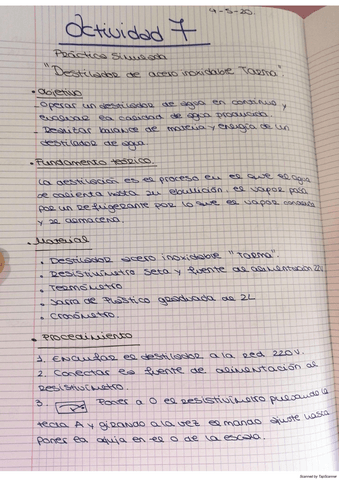 4-5-20.
Actividad 7
Práctica Simulada
"Destilador de acero inoxidable Tarma"
• Objetivo
- Operar un destilador de agua en continuo y
evaluar la calidad de agua producida.
- Realizar balance de materia y energía de un
destilador de agua.
• Fundamento teórico
La destilación es el proceso en el que el agua
se calienta hasta su ebullición, el vapor pasa
por un refrigerante por lo que el vapor condensa
y se almacena.
• Material
• Destilador acero inoxidable "Tarma".
• Resistivímetro Seta y fuente de alimentación 220
• Termómetro
• Jarra de plástico graduada de 2L
• Cronómetro.
• Procedimiento
1. Enchufar el destilador a la red 220V.
2. Conectar la fuente de alimentación al
resistivímetro.
3. Poner a 0 el resistivímetro pulsando la
tecla A y girando a la vez el mando ajuste hasta
poner la aguja en el 0 de la escala.
Scanned by TapScanner